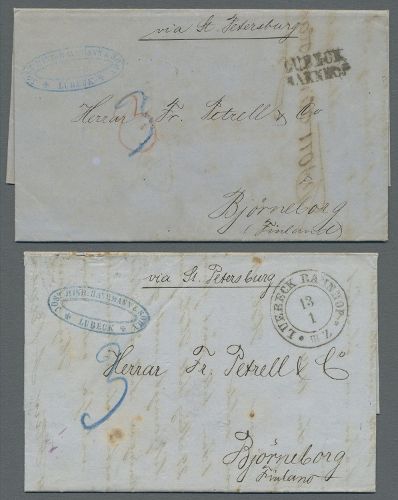 via St. Petersburg
LUBECK
LUBECK
BAHNHOF
3
Herrar Fr. Petrell & Co
Björneborg
(Finland)
via St. Petersburg
LUBECK
LUEBECK BAHNHOF
13
1
3
Herrar Fr. Petrell & Co
Björneborg
Finland